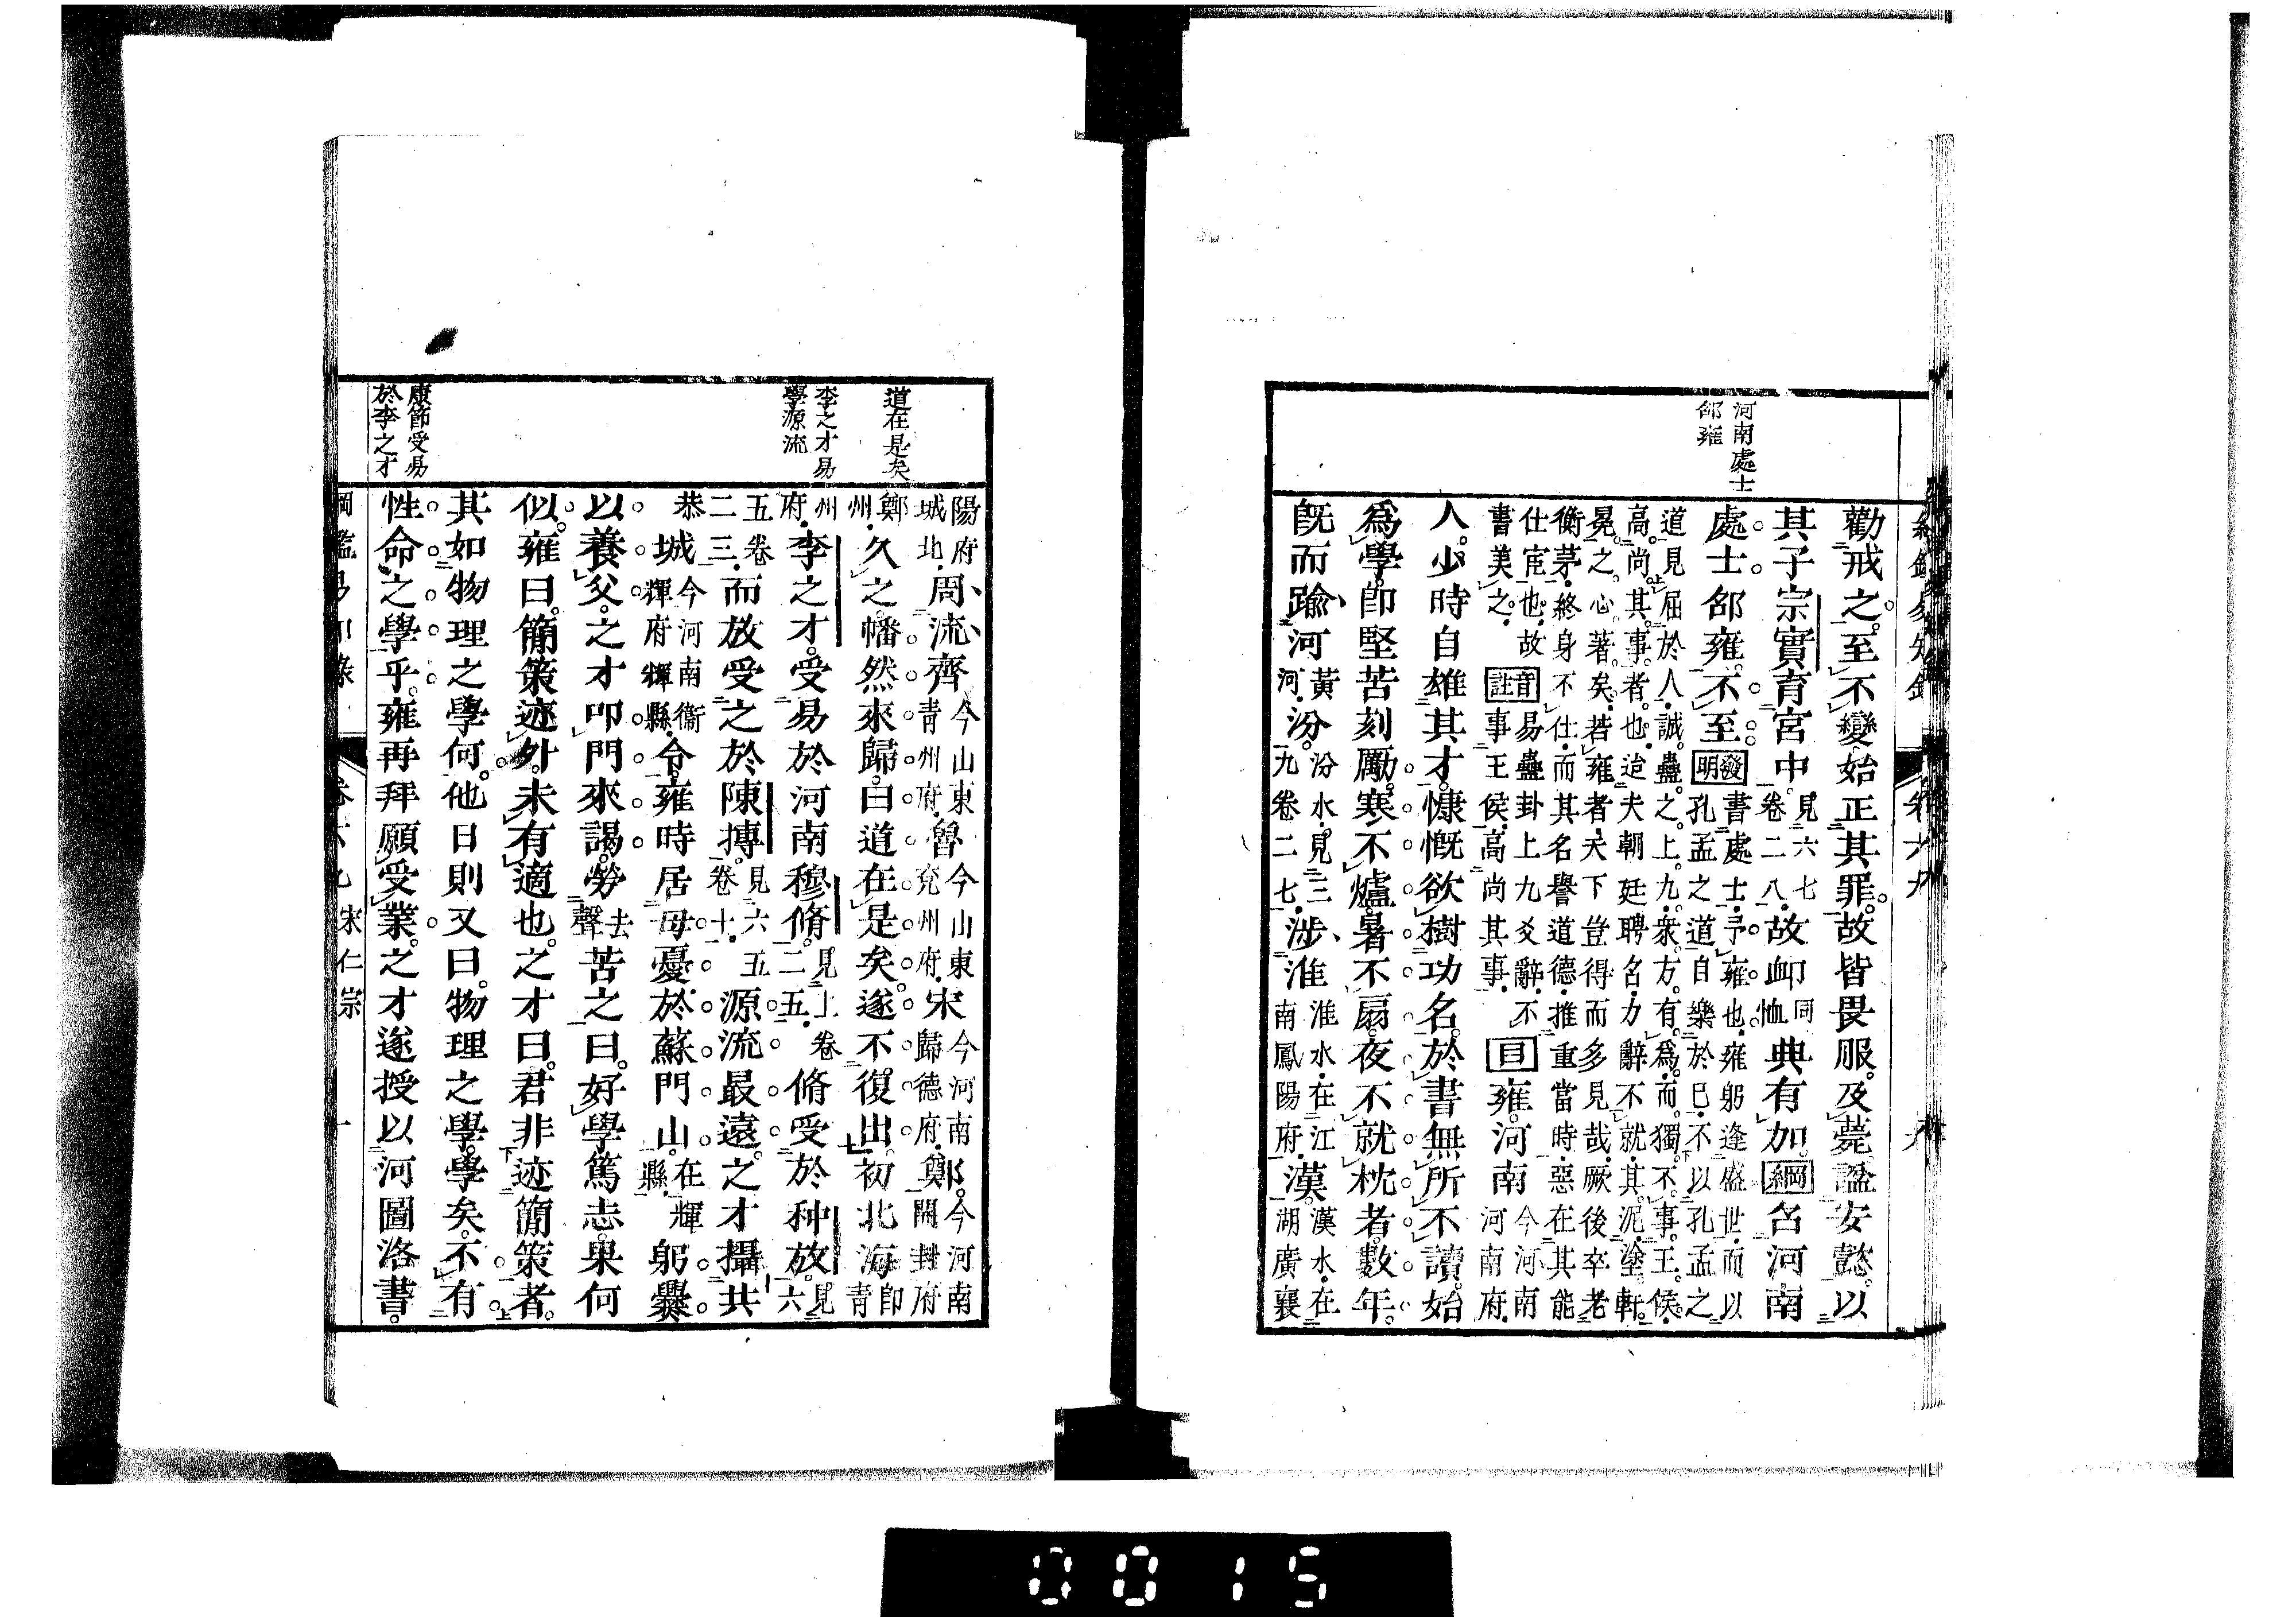 河南處士
邵雍
勸戒之至不變始正其罪故皆畏服及薨諡安懿以
其子宗實育宮中見六七卷二八故卹同恤典有加綱召河南
處士邵雍不至發明書處士予雍也雍躬逢盛世而以孔孟之道自樂於已不以孔孟之
道見屈於人誠蠱之上九衆方有爲而獨不事王侯
高尚其事者也迨夫朝廷聘名力辭不就其泥塗軒
冕之心著矣若雍者天下豈得而多見哉厥後卒老
衡茅終身不仕而其名譽道德推重當時惡在其能
仕宦也故書美之音註易蠱卦上九爻辭不事王侯高尚其事目雍河南今河南河南府
人少時自雄其才慷慨欲樹功名於書無所不讀始
爲學卽堅苦刻厲寒不爐暑不扇夜不就枕者數年
旣而踰河黃河汾汾水見三九卷二七涉淮淮水在江南鳳陽府漢漢水在湖廣襄
道在是矣
李之才易
學源流
康節受易
於李之才
陽府城北周流齊今山東青州府魯今山東兗州府宋今河南歸德府鄭今河南開封府
鄭州久之幡然來歸曰道在是矣遂不復出初北海卽青
州府李之才受易於河南穆脩見上卷二五脩受於种放見六
五卷二三而放受之於陳摶見六五卷十源流最遠之才攝共
恭城今河南衞輝府輝縣令雍時居母憂於蘇門山在輝縣躬爨
以養父之才叩門來謁勞去聲苦之曰好學篤志果何
似雍曰簡策迹外未有適也之才曰君非迹簡策者
其如物理之學何他日則又曰物理之學學矣不有
性命之學乎雍再拜願受業之才遂授以河圖洛書
宋仁宗
0015